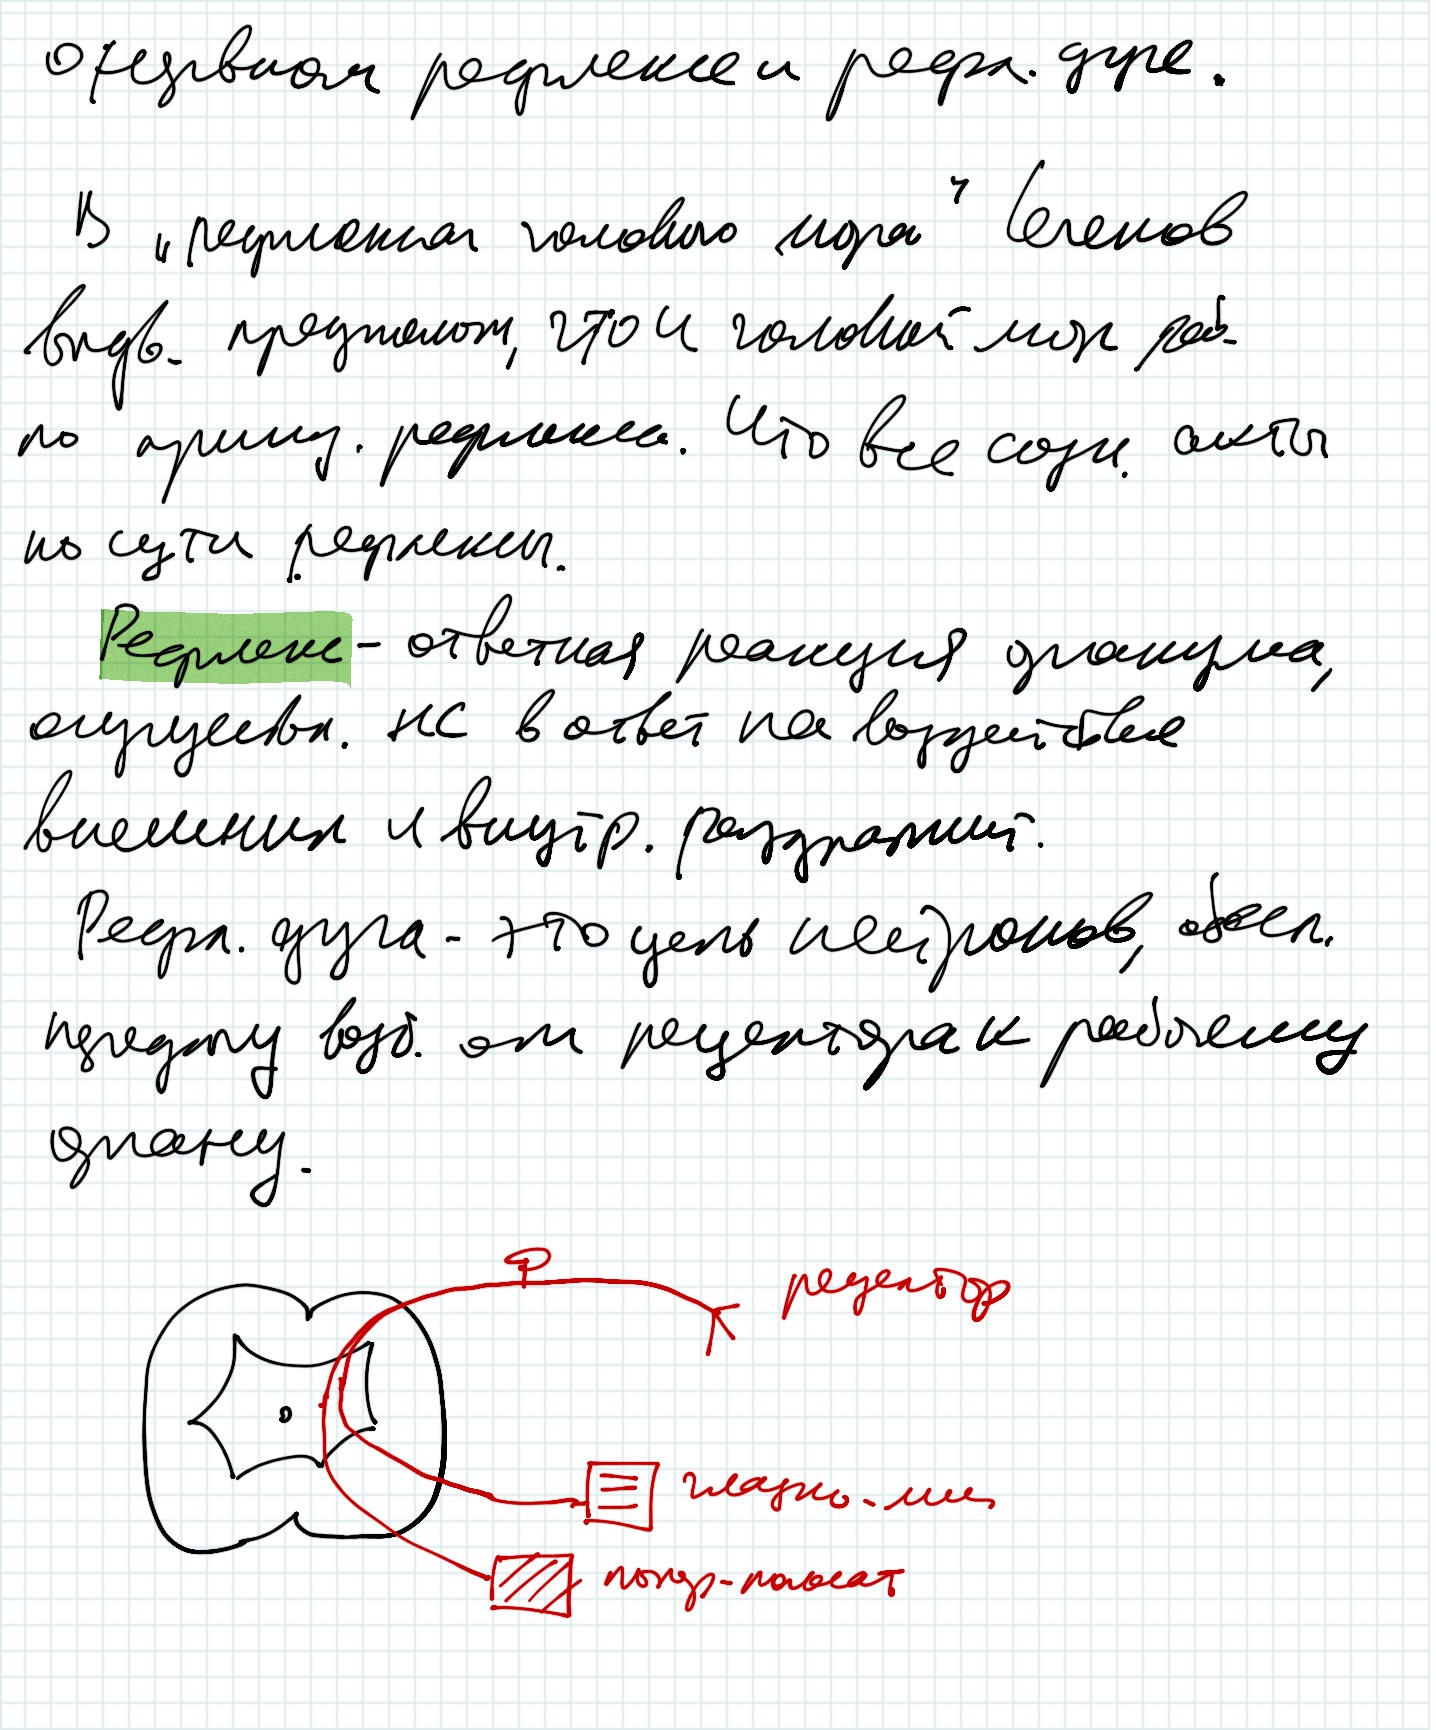 рефлексе и рефл. дуге.
В „рефлексах головного мозга" Сеченов
выдв. предполож, что и головной мозг раб.
по принц. рефлекса. Что все созн. акты
по сути рефлексы.
Рефлекс - ответная реакция организма,
осуществл. НС в ответ на воздействие
внешних и внутр. раздражит.
Рефл. дуга - это цепь нейронов, обесп.
передачу возб. от рецептора к рабочему
органу.
рецептор
гладко-мыш
попер-полосат